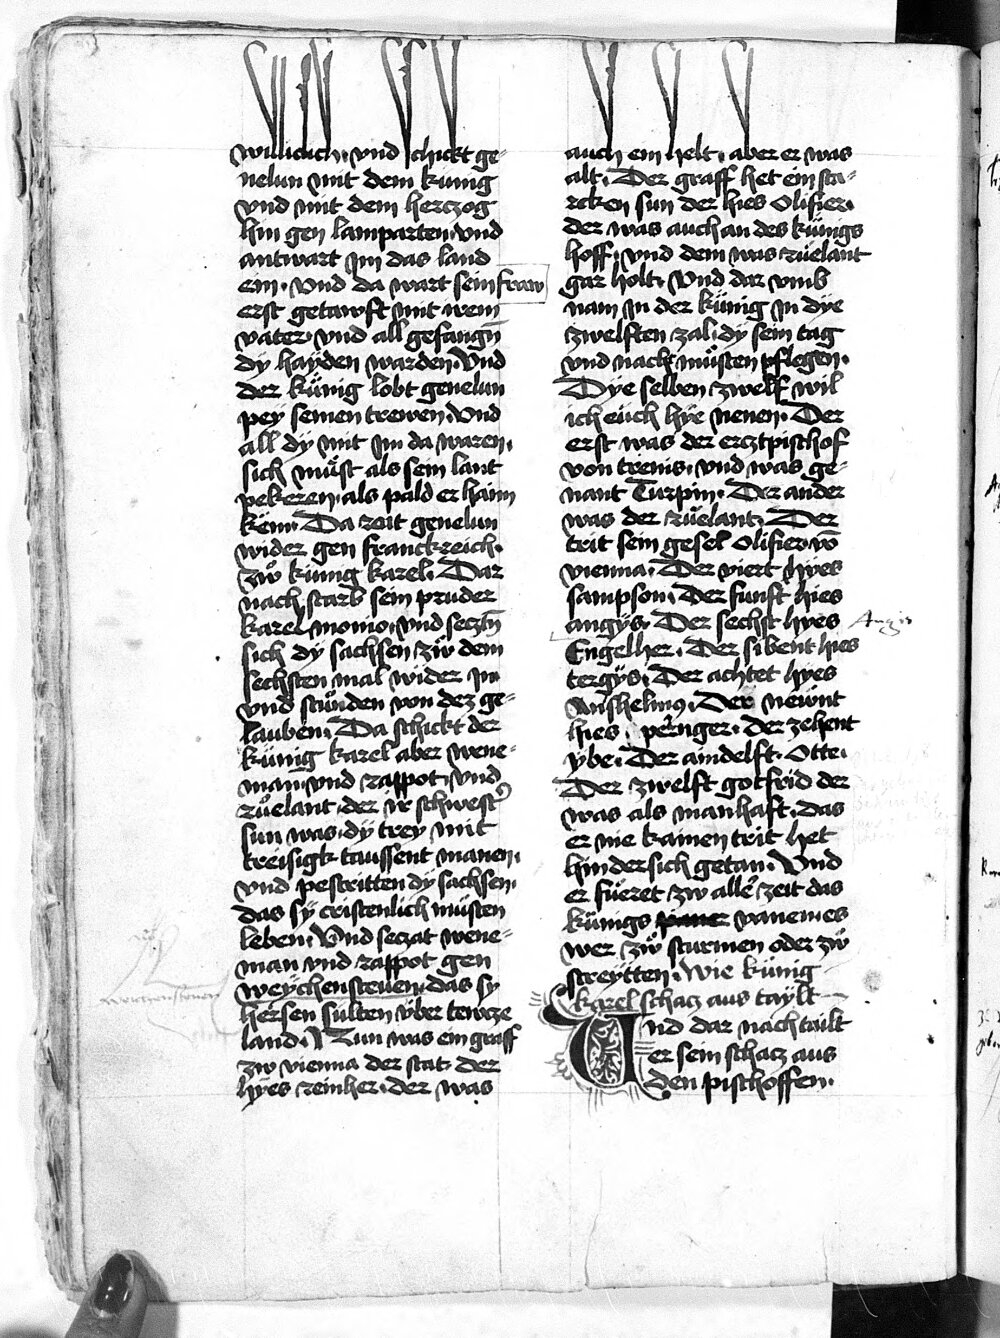 willicich. vnd schickt ge-
nelun mit dem kunig
vnd mit dem herczog
hin gen lamparten. vnd
antwart jm das land
ein. vnd da wart sein fraw
erst getawft mit irem
vater. vnd all gefangn̄
dy hayden warden. Vnd
der künig lobt genelun
pey seinen trewen. Vnd
all dy mit jm da waren.
sich müst als sein lant
pekeren. als pald er haim
kem. Da rait genelun
wider gen franckreich.
zw künig karel. Dar
nach starb sein pruder
karel monio. vnd secztn̄
sich dy sachsen zw dem
sechsten mal wider jn
vnd stunden von dez ge-
lauben. Da schickt der
künig karel aber wene-
man. vnd rappot. vnd
rüelant. der ir schwester
sun was. dy trey mit
treisigk taussent manen.
vnd pestritten dy sachsen.
das sy cristenlich müsten
leben. Vnd seczat wene-
man vnd rappot gen
weychensteuen. das sy
hersen sülten vber tewcze
land. Nun was ein graff
zw vienna der stat. der
hyes reinher. der was
auch ein helt. aber er was
alt. Der graff het ein sta-
rcken sun der hies Olifier.
der was auch an des künigs
hoff. vnd dem was rüelant
gar holt. Vnd dar vmb
nam jn der künig jn dye
zwelften zal. dy sein tag
vnd nacht müsten pflegen.
Dye selben zwelf wil
ich euch hye nenen. Der
erst was der ercztpischof
von trenis. vnd was ge-
nant Turpin. Der ander
was der rüelant. Der
trit sein gesel Olifier vō
vienna. Der viert hyes
sampson. Der funft hies
angys. Der sechst hyes
Engelher. Der sibent hies
tergys. Der achtet hyes
Anshelmus. Der newnt
hies pernger. der zehent
ybe. Der aindelft. Otte.
Der zwelft gotfrid der
was als manhaft. das
er nie kainen trit het
hindersich getan. Vnd
er füeret zw alle zeit das
künigs paner vanem es
wer zw sturmen oder zw
streytten. Wie künig
karel schacz aus taylt
Vnd dar nach tailt
er sein schacz aus
den pischoffen.